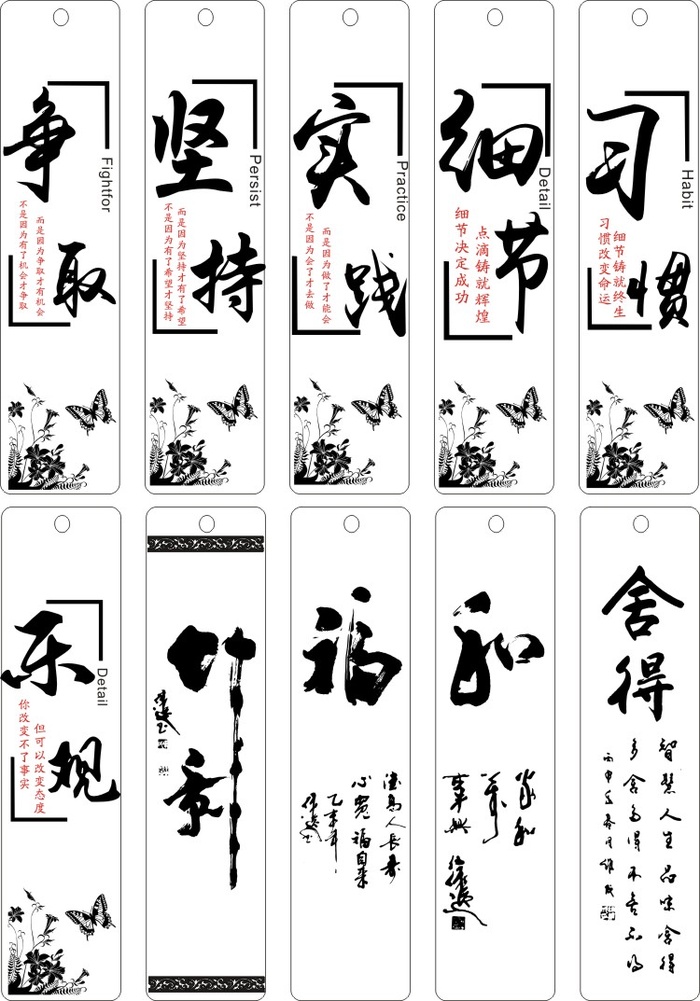 争取
Fightfor
不是因为有了机会才争取
而是因为争取才有机会
坚持
Persist
不是因为有了希望才坚持
而是因为坚持才有了希望
实践
Practice
不是因为会了才去做
而是因为做了才能会
细节
Detail
细节决定成功
点滴铸就辉煌
习惯
Habit
习惯改变命运
细节铸就终生
乐观
Detail
你改变不了事实
但可以改变态度
福
德高人长寿
心宽福自来
和
家和
万事兴
舍得
智慧人生品味舍得
多舍多得不舍不得